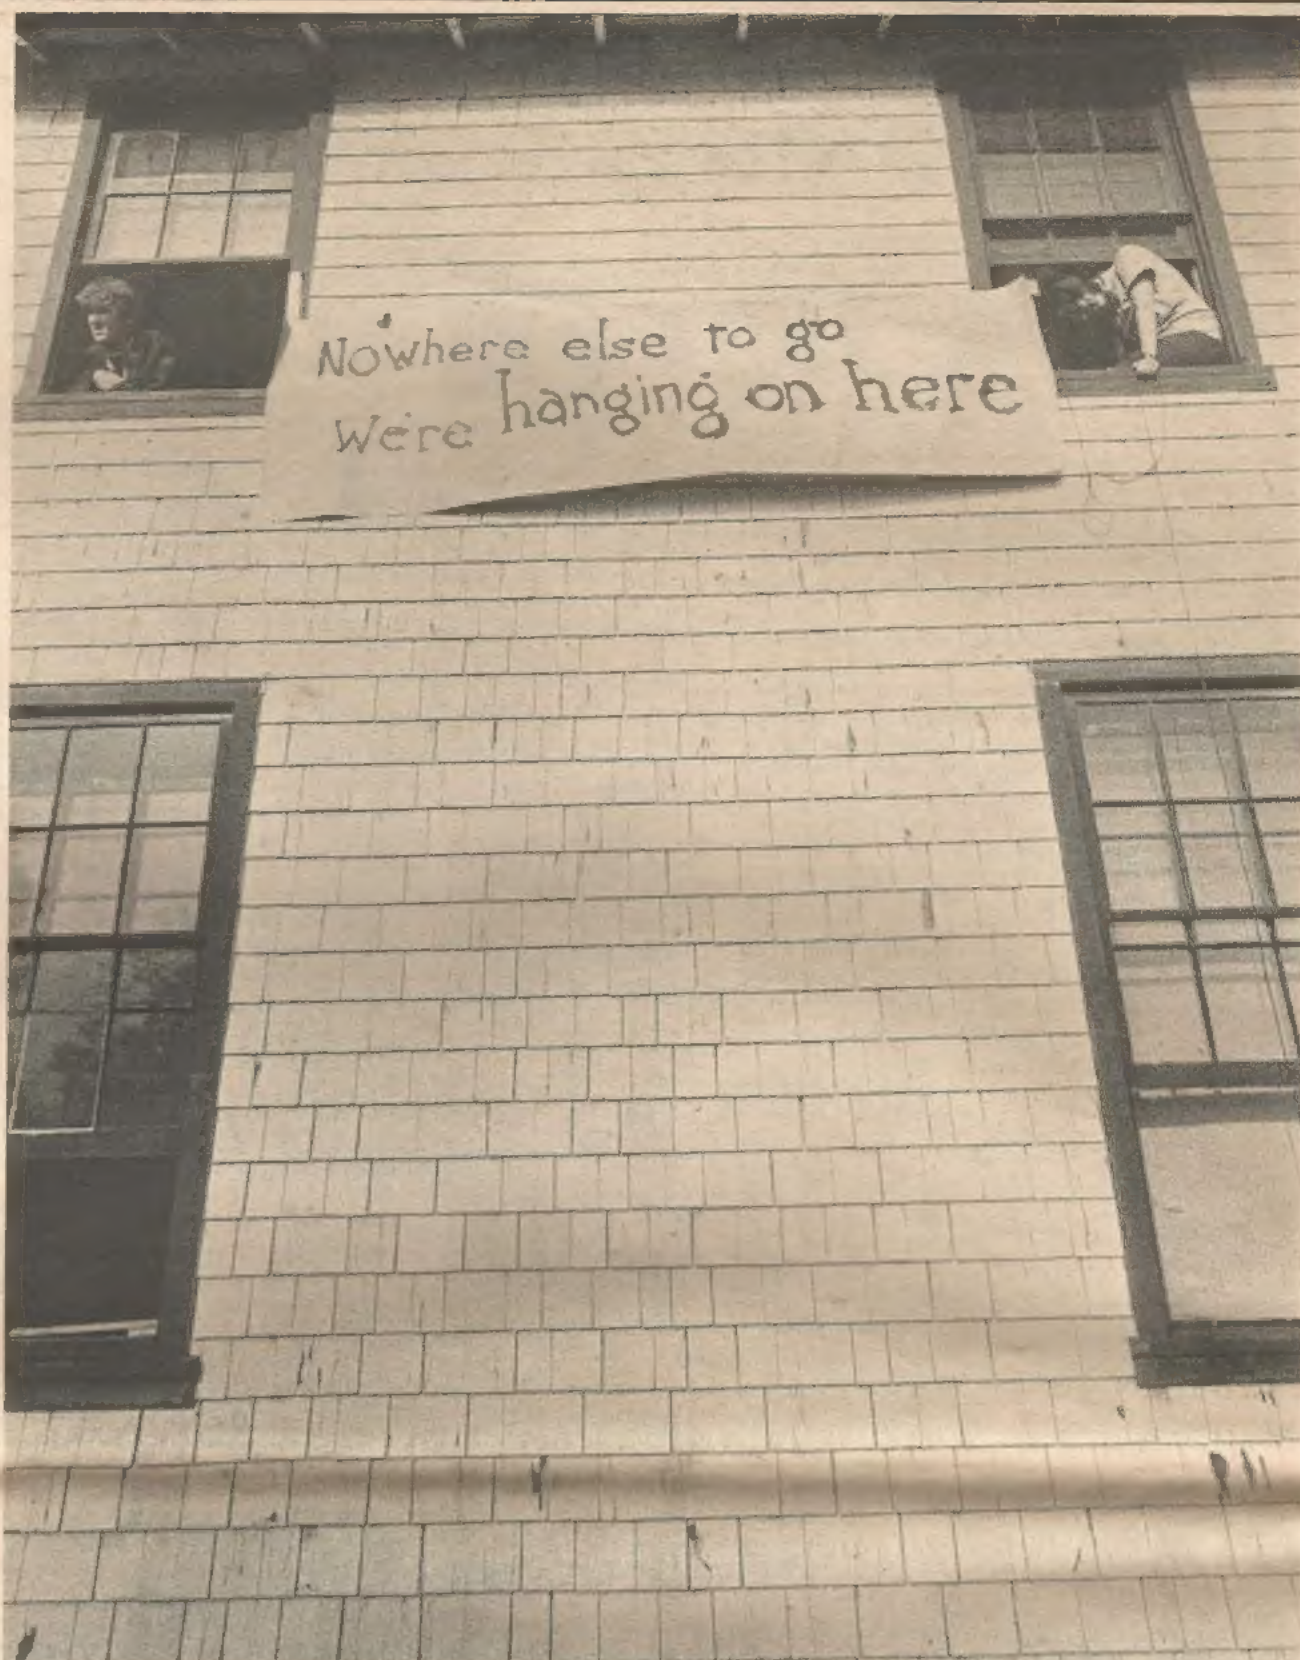 Nowhere else to go
We're hanging on here